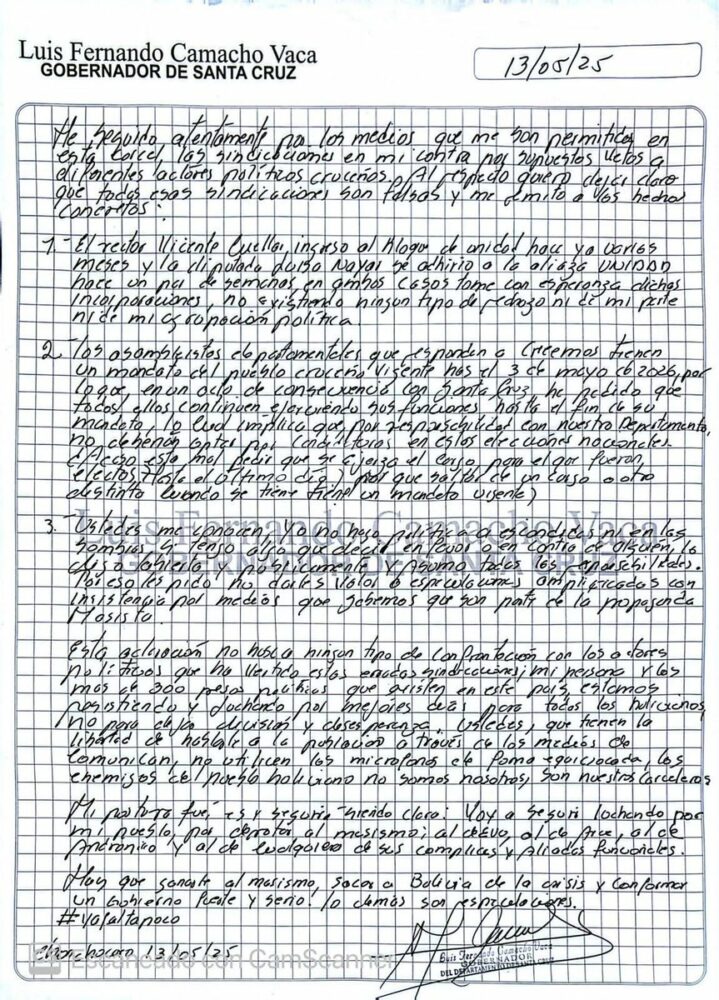 Luis Fernando Camacho Vaca
GOBERNADOR DE SANTA CRUZ
13/05/25
He seguido atentamente por los medios que me son permitidos en
esta carcel, las sindicaciones en mi contra por supuestos vetos a
diferentes actores politicos cruceños. Al respecto quiero dejar claro
que todas esas sindicaciones son falsas y me remito a los hechos
concretos:
1.- El rector Vicente Cuellar ingreso al bloque de unidad hace ya varios
meses y la diputada Luisa Nayar se adhirio a la aliaza UNIDAD
hace un par de semanas, en ambos casos tome con esperanza dichas
incorporaciones, no existiendo ningun tipo de rechazo ni de mi parte
ni de mi agrupación política.
2.- Los asambleistas departamentales que responden a Creemos tienen
un mandato del pueblo cruceño vigente has el 3 de mayo de 2026, por
lo que, en un acto de consecuencia con Santa Cruz, he pedido que
todos ellos continuen ejerciendo sus funciones hasta el fin de su
mandato, lo cual implica que, por responsabilidad con nuestro Departamento,
no deberian optar por candidaturas en estas elecciones nacionales.
¿Acaso esta mal pedir que se ejerza el cargo para el que fueron
electos hasta el último día? por que saltar de un cargo a otro
distinto cuando se tiene un mandato vigente)
3.- Ustedes me conocen, yo no hago politica a escondidas ni en las
sombras, si tengo algo que decir en favor o en contra de alguien, lo
digo abierta y publicamente y asumo todas las responsabilidades.
Por eso les pido no darles valor a especulaciones amplificadas con
insistencia por medios que sabemos que son parte de la propaganda
Masista.
Luis Fernando Camacho Vaca
GOBERNADOR DE SANTA CRUZ
Esta aclaración no busca ningun tipo de confrontación con los actores
políticos que ha vertido estas erradas sindicaciones; mi persona y los
mas de 300 presos políticos que existen en este país, estamos
resistiendo y luchando por mejores dias para todos los bolivianos,
no para dividir y desesperanza. Ustedes, que tienen la
libertad de hablarle a la población a través de los medios de
comunican, no utilicen los microfonos de forma equivocada, los
enemigos del pueblo boliviano no somos nosotros, son nuestros carceleros
Mi postura fue, es y seguira siendo clara: Voy a seguir luchando por
mi pueblo, por derrotar al masismo; al de evo, al de Arce, al de
Andronico y al de cualquiera de sus complices y aliados funcionales.
Hay que ganarle al masismo, sacar a Bolivia de la crisis y conformar
un Gobierno fuerte y serio. lo demás son especulaciones.
#yafaltapoco
Chonchocoro 13/05/25
Luis Fernando Camacho Vaca
GOBERNADOR
DEL DEPARTAMENTO DE SANTA CRUZ
Escaneado con CamScanner